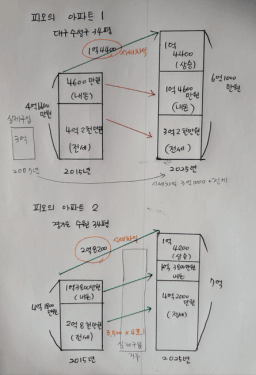 피오의 아파트 1
대구 수성구 34평
1억4400
시세차익
4600만원
(내돈)
4억2천만원
(전세)
4억6600
만원
실제구입
3억
2005년
2015년
1억
4400
(상승)
1억4600
만원
(내돈)
3억2천만원
(전세)
6억1000
만원
2025년
피오의 아파트 2
경기도 수원 34평
2억8200
시세차익
1억3800만원
(내돈)
2억8천만원
(전세)
4억1800
만원
2015년
실제구입
거주
1억
4200
(상승)
1억3800만원
내돈
4억2000
만원
(전세)
7억
2025년